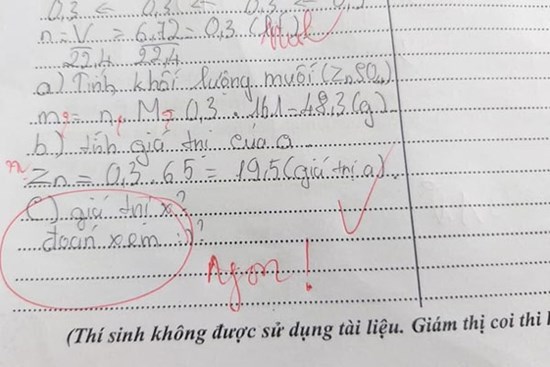 0,3 ← 0,3 ← ← 0,3
n = V/22,4 = 6,72/22,4 = 0,3 (mol)
a) Tính khối lượng muối (ZnSO₄)
m = n . M = 0,3 . 161 = 48,3 (g)
b) tính giá trị của a
m Zn = 0,3 . 65 = 19,5 (giá trị a)
c) giá trị x?
đoán xem :)?
Ngon!
(Thí sinh không được sử dụng tài liệu. Giám thị coi thi